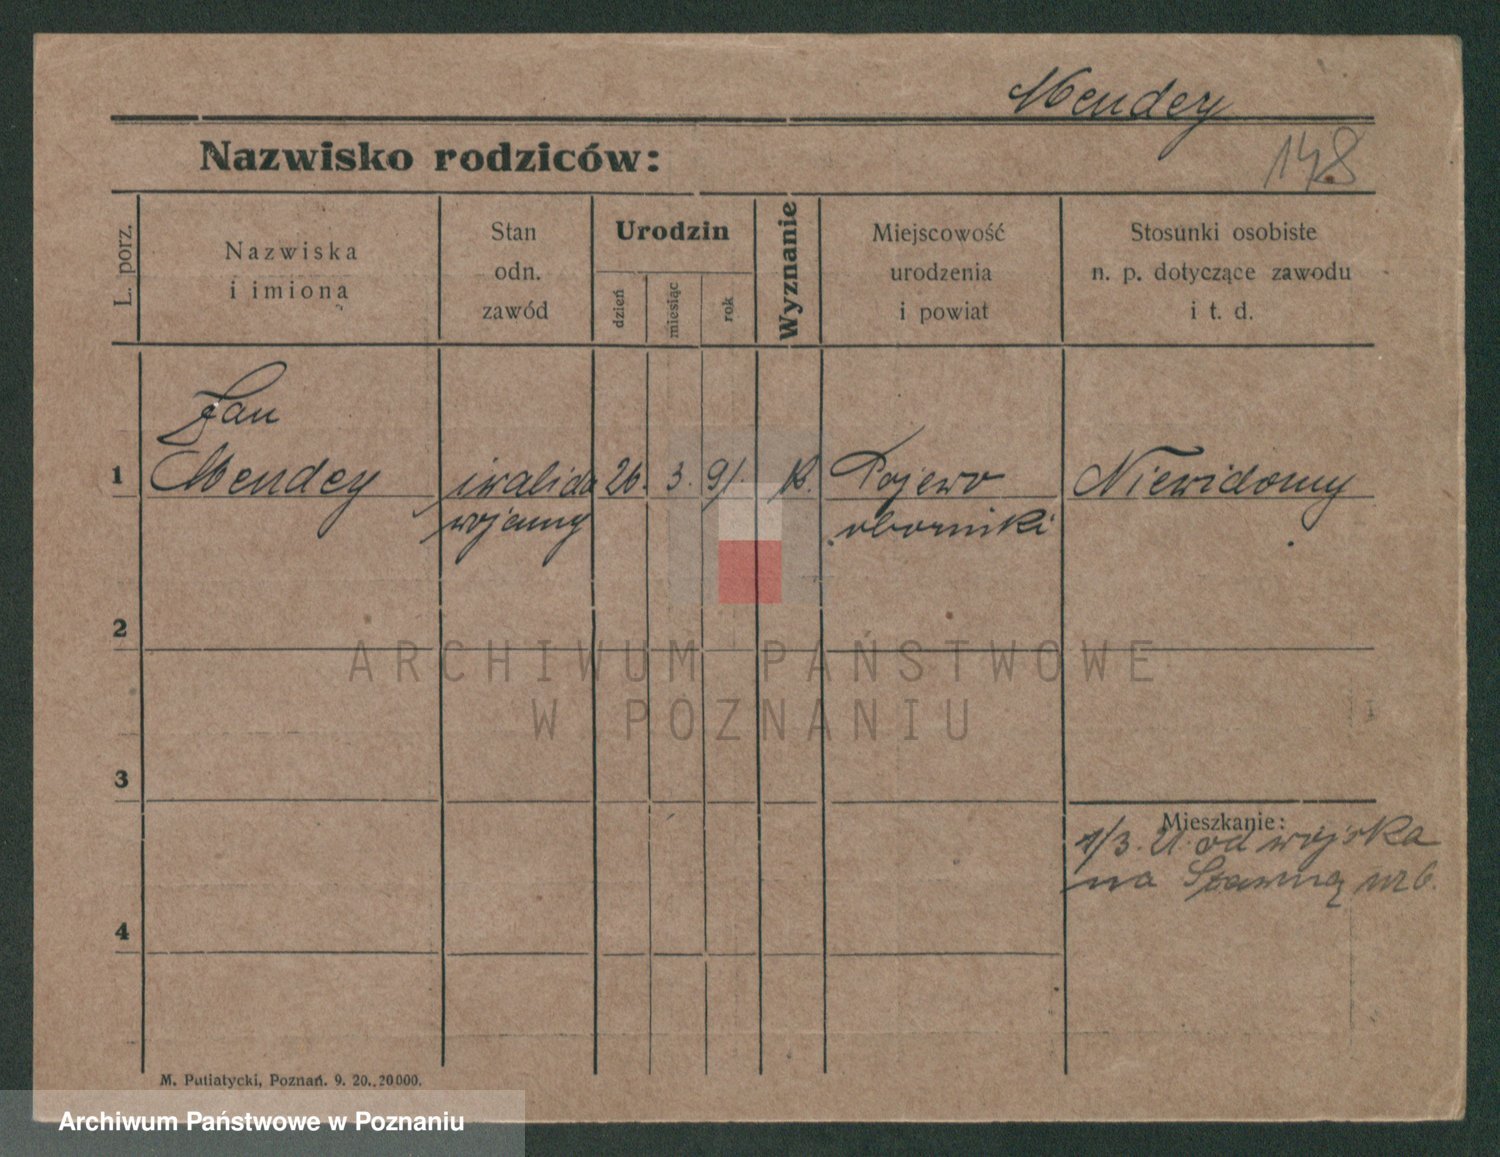 Mendey
148
Nazwisko rodziców:
L. porz.
Nazwiska
i imiona
Stan
odn.
zawód
Urodzin
dzień
miesiąc
rok
Wyznanie
Miejscowość
urodzenia
i powiat
Stosunki osobiste
n. p. dotyczące zawodu
i t. d.
Jan
1 Mendey iwalida 26. 3. 91. k. Pojewo Niewidomy
wojenny oborniki
2
ARCHIWUM PAŃSTWOWE
W POZNANIU
3
Mieszkanie:
1/3. 21. od wojska
na Stawną nr 6.
4
M. Putiatycki, Poznań. 9. 20. 20000.
Archiwum Państwowe w Poznaniu